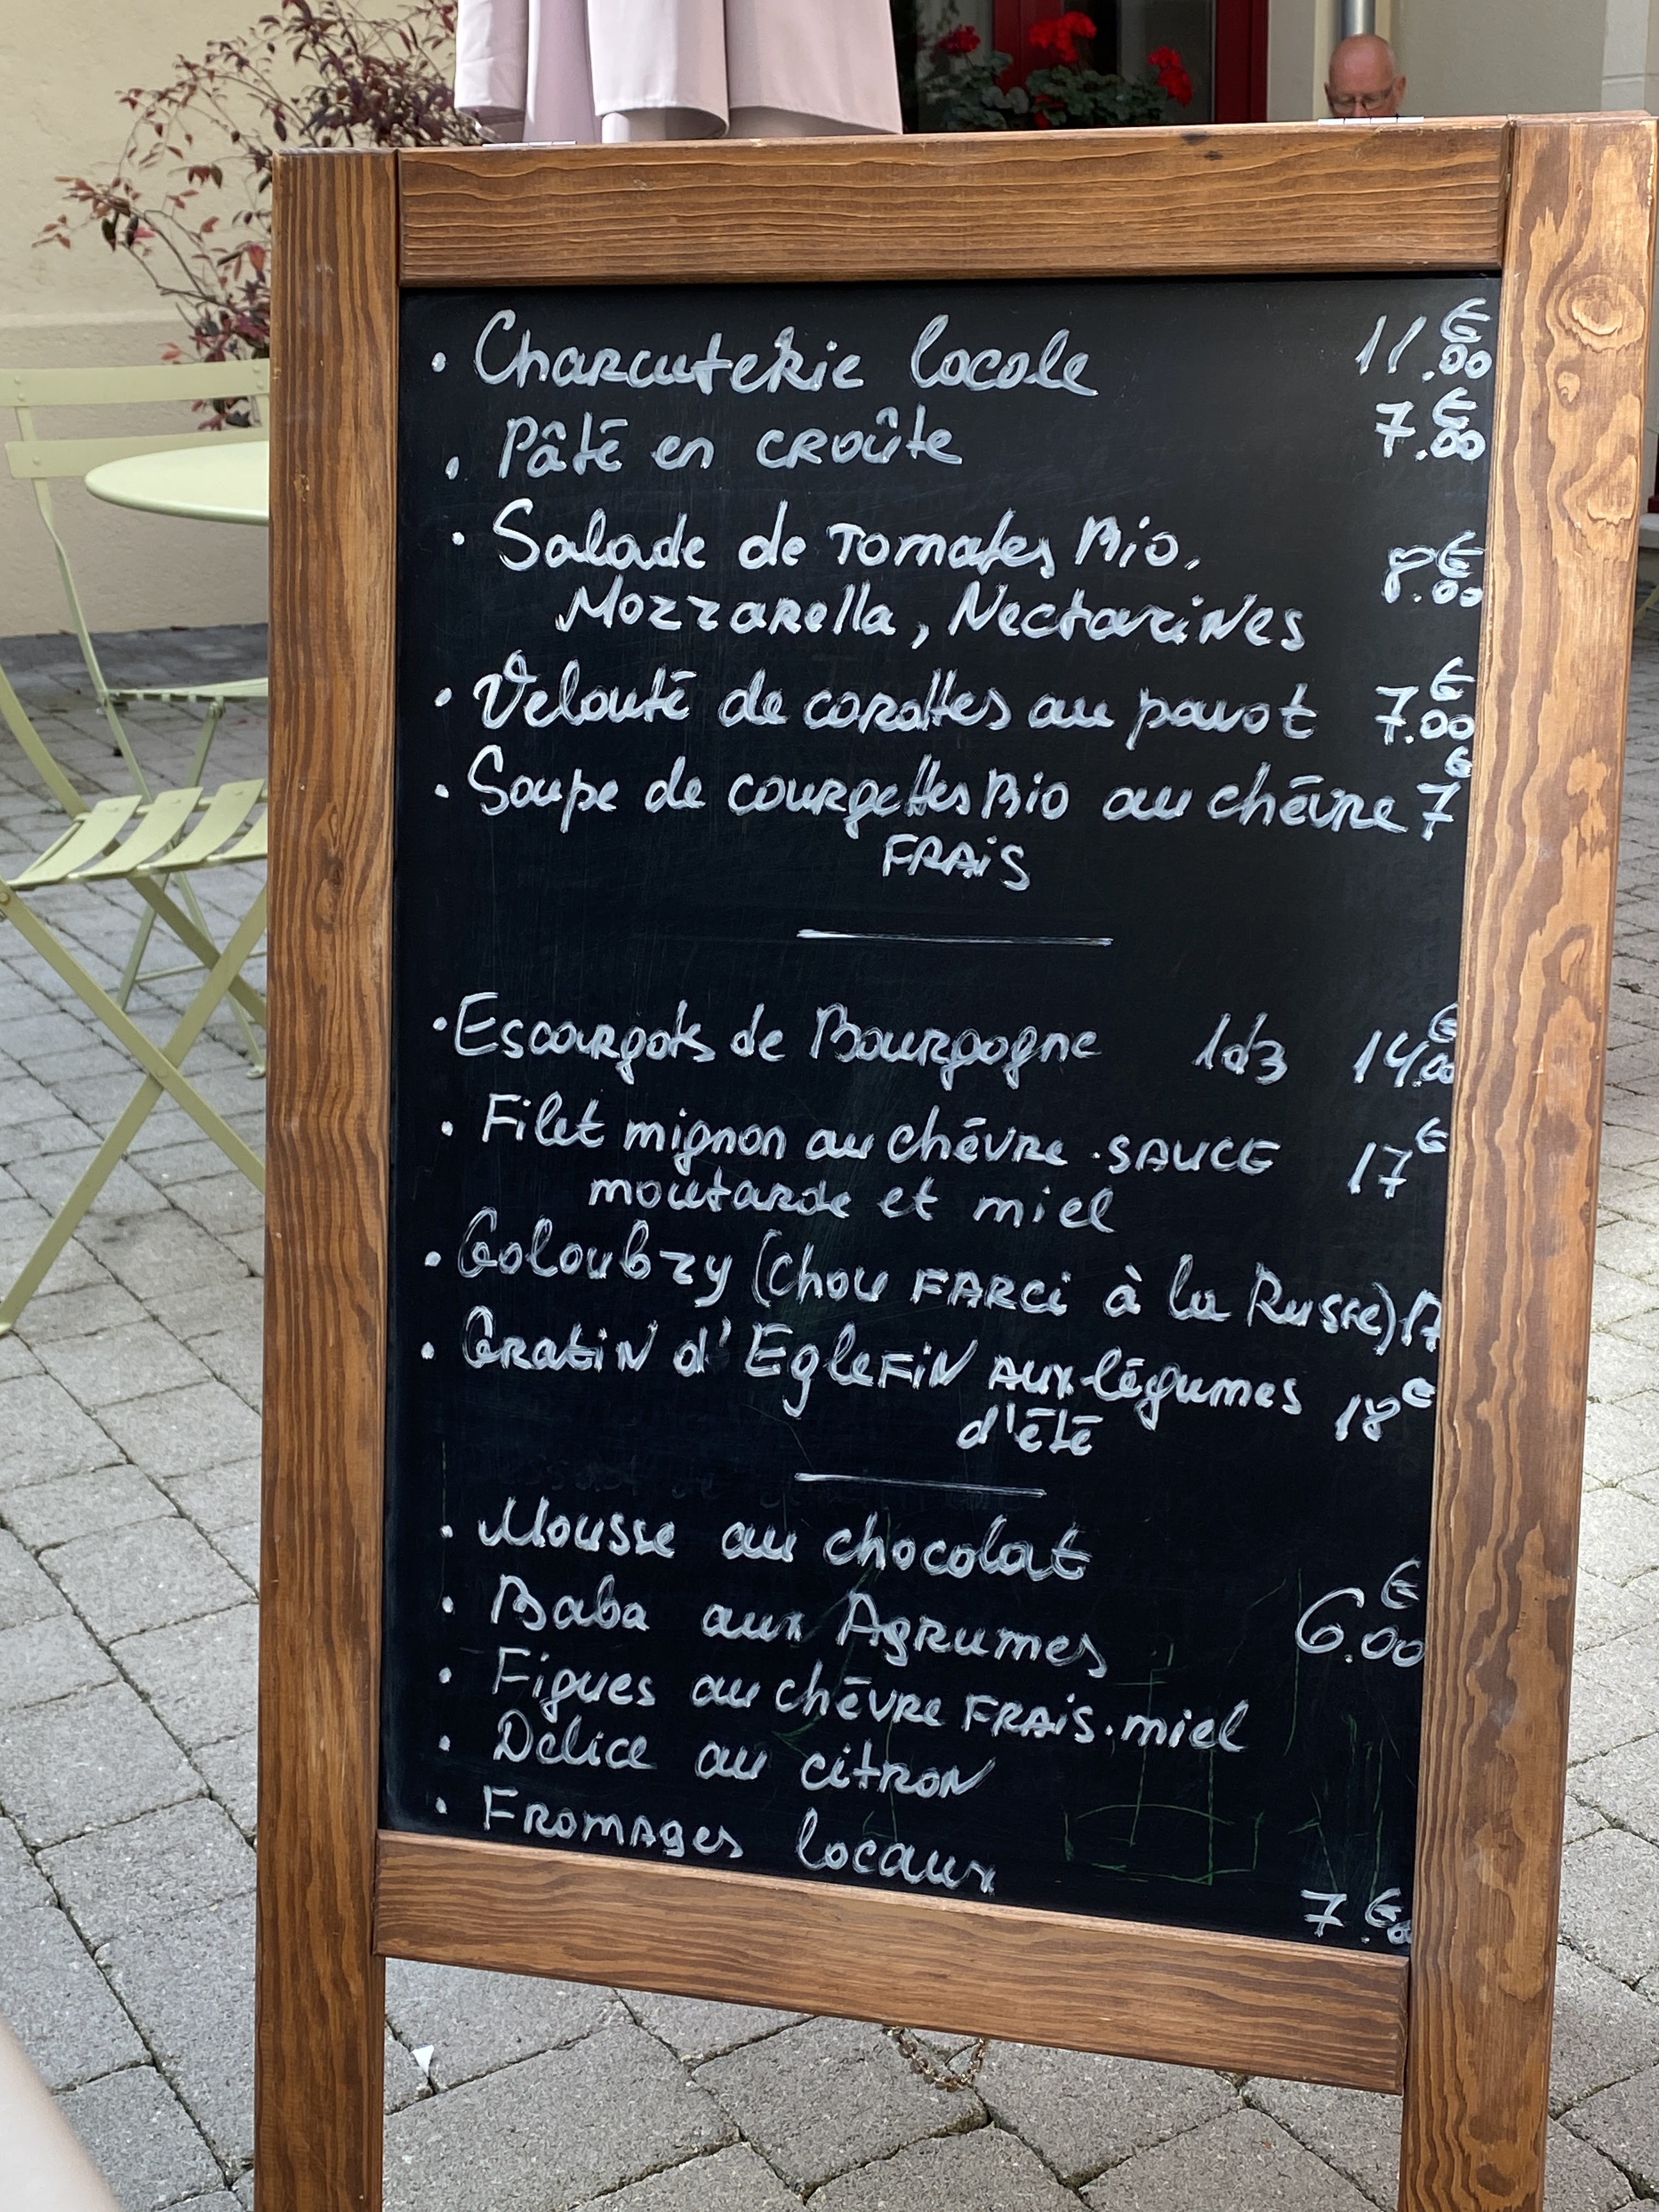 • Charcuterie locale 11.00 €
• Pâté en croûte 7.00 €
• Salade de Tomates Bio,
Mozzarella, Nectarines 8.00 €
• Velouté de carottes au pavot 7.00 €
• Soupe de courgettes Bio au chèvre 7 €
FRAIS
• Escargots de Bourgogne 1dz 14.00 €
• Filet mignon au chèvre . SAUCE 17 €
moutarde et miel
• Goloubzy (Chou FARCi à la Russe) 17
• Gratin d'EgleFiN AUX légumes 18 €
d'été
• Mousse au chocolat
• Baba aux Agrumes 6.00 €
• Figues au chèvre FRAIS . miel
• Délice au citron
• Fromages locaux
7 €